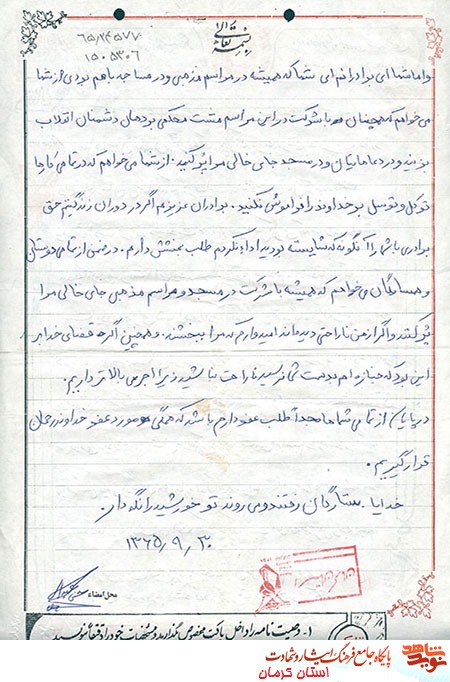 بسمه تعالی
۶۵٫۲۴۵۷۷
۱۵۰۵۳۰۶
و اما شما ای برادرانم ای شما که همیشه در مراسم مذهبی و در مساجد با هم بودیم از شما
می‌خواهم که همچنان با شرکت در این مراسم مشت محکمی بر دهان دشمنان انقلاب
بزنید و در دعاهایتان و در مسجد جای خالی مرا پر کنید. از شما می‌خواهم که در تمامی کارها
توکل و توسل بر خداوند را فراموش نکنید. برادران عزیزم اگر در دوران زندگیم حق
برادری با شما را آنگونه که شایسته بود ادا نکردم طلب بخشش دارم. در ضمن از تمامی دوستان
و همسایگان می‌خواهم که همیشه با شرکت در مسجد و مراسم مذهبی جای خالی مرا
پر کنند و اگر از من ناراحتی دیده‌اند امیدوارم که مرا ببخشند. و همچنین اگر قضای خدا بر
این بود که جنازه‌ام بدست شما نرسید ناراحت نباشید زیرا اجرمی بالاتر داریم.
در پایان از تمامی شماها مجدداً طلب عفو دارم باشد که همگی مورد عفو خداوند رحمان
قرار گیریم.
خدایا ستارگان رفتند و می‌روند تو خورشید را نگه‌دار.
۱۳۶۵٫۹٫۳۰
محل امضاء
استان کرمان
۱- وصیت نامه را داخل پاکت مخصوص بگذارید و مشخصات خود را دقیقاً بنویسید
نوید شاهد
پایگاه جامع فرهنگ ایثار و شهادت
استان کرمان